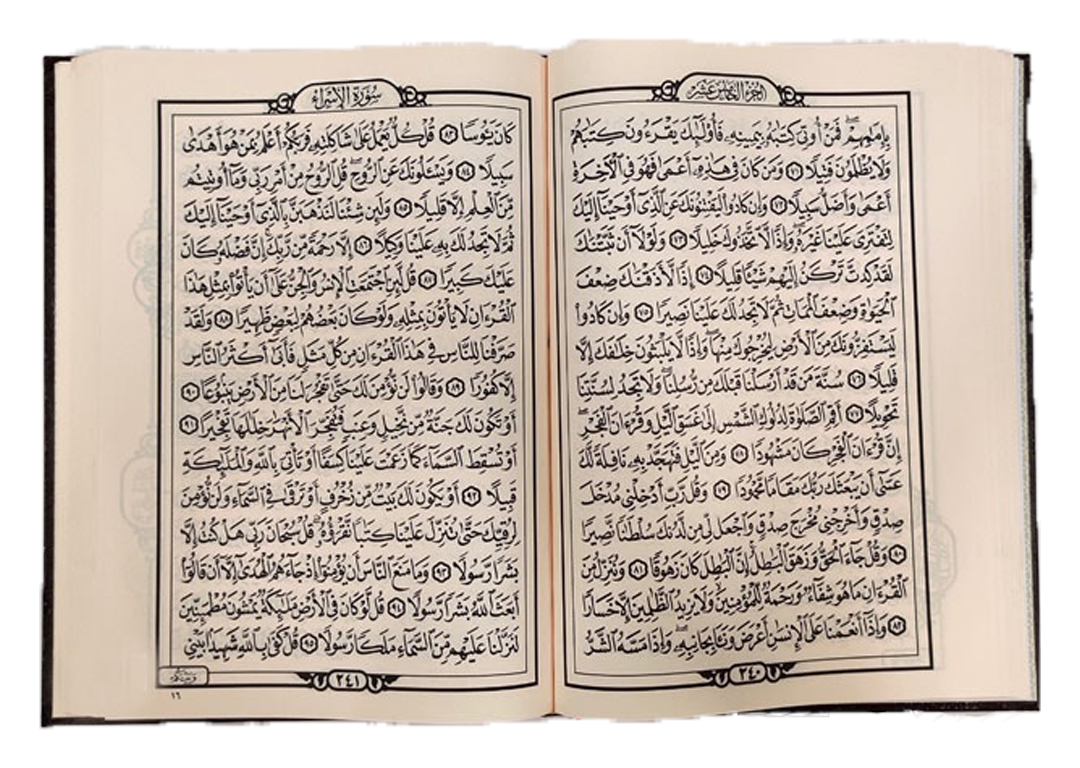 الجُزْءُ الخَامِسَ عَشَرَ
بِإِمَٰمِهِمْ ۖ فَمَنْ أُوتِىَ كِتَٰبَهُۥ بِيَمِينِهِۦ فَأُو۟لَٰٓئِكَ يَقْرَءُونَ كِتَٰبَهُمْ
وَلَا يُظْلَمُونَ فَتِيلًا ٧١ وَمَن كَانَ فِى هَٰذِهِۦٓ أَعْمَىٰ فَهُوَ فِى ٱلْءَاخِرَةِ
أَعْمَىٰ وَأَضَلُّ سَبِيلًا ٧٢ وَإِن كَادُوا۟ لَيَفْتِنُونَكَ عَنِ ٱلَّذِىٓ أَوْحَيْنَآ إِلَيْكَ
لِتَفْتَرِىَ عَلَيْنَا غَيْرَهُۥ ۖ وَإِذًا لَّٱتَّخَذُوكَ خَلِيلًا ٧٣ وَلَوْلَآ أَن ثَبَّتْنَٰكَ
لَقَدْ كِدتَّ تَرْكَنُ إِلَيْهِمْ شَيْـًٔا قَلِيلًا ٧٤ إِذًا لَّأَذَقْنَٰكَ ضِعْفَ
ٱلْحَيَوٰةِ وَضِعْفَ ٱلْمَمَاتِ ثُمَّ لَا تَجِدُ لَكَ عَلَيْنَا نَصِيرًا ٧٥ وَإِن كَادُوا۟
لَيَسْتَفِزُّونَكَ مِنَ ٱلْأَرْضِ لِيُخْرِجُوكَ مِنْهَا ۖ وَإِذًا لَّا يَلْبَثُونَ خِلَٰفَكَ إِلَّا
قَلِيلًا ٧٦ سُنَّةَ مَن قَدْ أَرْسَلْنَا قَبْلَكَ مِن رُّسُلِنَا ۖ وَلَا تَجِدُ لِسُنَّتِنَا
تَحْوِيلًا ٧٧ أَقِمِ ٱلصَّلَوٰةَ لِدُلُوكِ ٱلشَّمْسِ إِلَىٰ غَسَقِ ٱلَّيْلِ وَقُرْءَانَ ٱلْفَجْرِ ۖ
إِنَّ قُرْءَانَ ٱلْفَجْرِ كَانَ مَشْهُودًا ٧٨ وَمِنَ ٱلَّيْلِ فَتَهَجَّدْ بِهِۦ نَافِلَةً لَّكَ
عَسَىٰٓ أَن يَبْعَثَكَ رَبُّكَ مَقَامًا مَّحْمُودًا ٧٩ وَقُل رَّبِّ أَدْخِلْنِى مُدْخَلَ
صِدْقٍ وَأَخْرِجْنِى مُخْرَجَ صِدْقٍ وَٱجْعَل لِّى مِن لَّدُنكَ سُلْطَٰنًا نَّصِيرًا
٨٠ وَقُلْ جَآءَ ٱلْحَقُّ وَزَهَقَ ٱلْبَٰطِلُ ۚ إِنَّ ٱلْبَٰطِلَ كَانَ زَهُوقًا ٨١ وَنُنَزِّلُ مِنَ
ٱلْقُرْءَانِ مَا هُوَ شِفَآءٌ وَرَحْمَةٌ لِّلْمُؤْمِنِينَ ۙ وَلَا يَزِيدُ ٱلظَّٰلِمِينَ إِلَّا خَسَارًا
٨٢ وَإِذَآ أَنْعَمْنَا عَلَى ٱلْإِنسَٰنِ أَعْرَضَ وَنَـَٔا بِجَانِبِهِۦ ۖ وَإِذَا مَسَّهُ ٱلشَّرُّ
٢٤٠
سُورَةُ الإِسْرَاءِ
كَانَ يَـُٔوسًا ٨٣ قُلْ كُلٌّ يَعْمَلُ عَلَىٰ شَاكِلَتِهِۦ فَرَبُّكُمْ أَعْلَمُ بِمَنْ هُوَ أَهْدَىٰ
سَبِيلًا ٨٤ وَيَسْـَٔلُونَكَ عَنِ ٱلرُّوحِ ۖ قُلِ ٱلرُّوحُ مِنْ أَمْرِ رَبِّى وَمَآ أُوتِيتُم
مِّنَ ٱلْعِلْمِ إِلَّا قَلِيلًا ٨٥ وَلَئِن شِئْنَا لَنَذْهَبَنَّ بِٱلَّذِىٓ أَوْحَيْنَآ إِلَيْكَ
ثُمَّ لَا تَجِدُ لَكَ بِهِۦ عَلَيْنَا وَكِيلًا ٨٦ إِلَّا رَحْمَةً مِّن رَّبِّكَ ۚ إِنَّ فَضْلَهُۥ كَانَ
عَلَيْكَ كَبِيرًا ٨٧ قُل لَّئِنِ ٱجْتَمَعَتِ ٱلْإِنسُ وَٱلْجِنُّ عَلَىٰٓ أَن يَأْتُوا۟ بِمِثْلِ هَٰذَا
ٱلْقُرْءَانِ لَا يَأْتُونَ بِمِثْلِهِۦ وَلَوْ كَانَ بَعْضُهُمْ لِبَعْضٍ ظَهِيرًا ٨٨ وَلَقَدْ
صَرَّفْنَا لِلنَّاسِ فِى هَٰذَا ٱلْقُرْءَانِ مِن كُلِّ مَثَلٍ فَأَبَىٰٓ أَكْثَرُ ٱلنَّاسِ
إِلَّا كُفُورًا ٨٩ وَقَالُوا۟ لَن نُّؤْمِنَ لَكَ حَتَّىٰ تَفْجُرَ لَنَا مِنَ ٱلْأَرْضِ يَنۢبُوعًا ٩٠
أَوْ تَكُونَ لَكَ جَنَّةٌ مِّن نَّخِيلٍ وَعِنَبٍ فَتُفَجِّرَ ٱلْأَنْهَٰرَ خِلَٰلَهَا تَفْجِيرًا ٩١
أَوْ تُسْقِطَ ٱلسَّمَآءَ كَمَا زَعَمْتَ عَلَيْنَا كِسَفًا أَوْ تَأْتِىَ بِٱللَّهِ وَٱلْمَلَٰٓئِكَةِ
قَبِيلًا ٩٢ أَوْ يَكُونَ لَكَ بَيْتٌ مِّن زُخْرُفٍ أَوْ تَرْقَىٰ فِى ٱلسَّمَآءِ وَلَن نُّؤْمِنَ
لِرُقِيِّكَ حَتَّىٰ تُنَزِّلَ عَلَيْنَا كِتَٰبًا نَّقْرَؤُهُۥ ۗ قُلْ سُبْحَانَ رَبِّى هَلْ كُنتُ إِلَّا
بَشَرًا رَّسُولًا ٩٣ وَمَا مَنَعَ ٱلنَّاسَ أَن يُؤْمِنُوٓا۟ إِذْ جَآءَهُمُ ٱلْهُدَىٰٓ إِلَّآ أَن قَالُوٓا۟
أَبَعَثَ ٱللَّهُ بَشَرًا رَّسُولًا ٩٤ قُل لَّوْ كَانَ فِى ٱلْأَرْضِ مَلَٰٓئِكَةٌ يَمْشُونَ مُطْمَئِنِّينَ
لَنَزَّلْنَا عَلَيْهِم مِّنَ ٱلسَّمَآءِ مَلَكًا رَّسُولًا ٩٥ قُلْ كَفَىٰ بِٱللَّهِ شَهِيدًۢا بَيْنِى
٢٤١
١٦